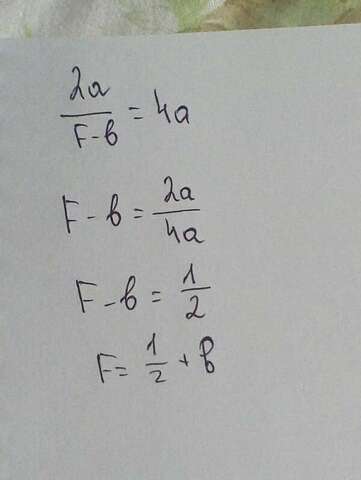 2a/F-b = 4a
F - b = 2a/4a
F - b = 1/2
F = 1/2 + b